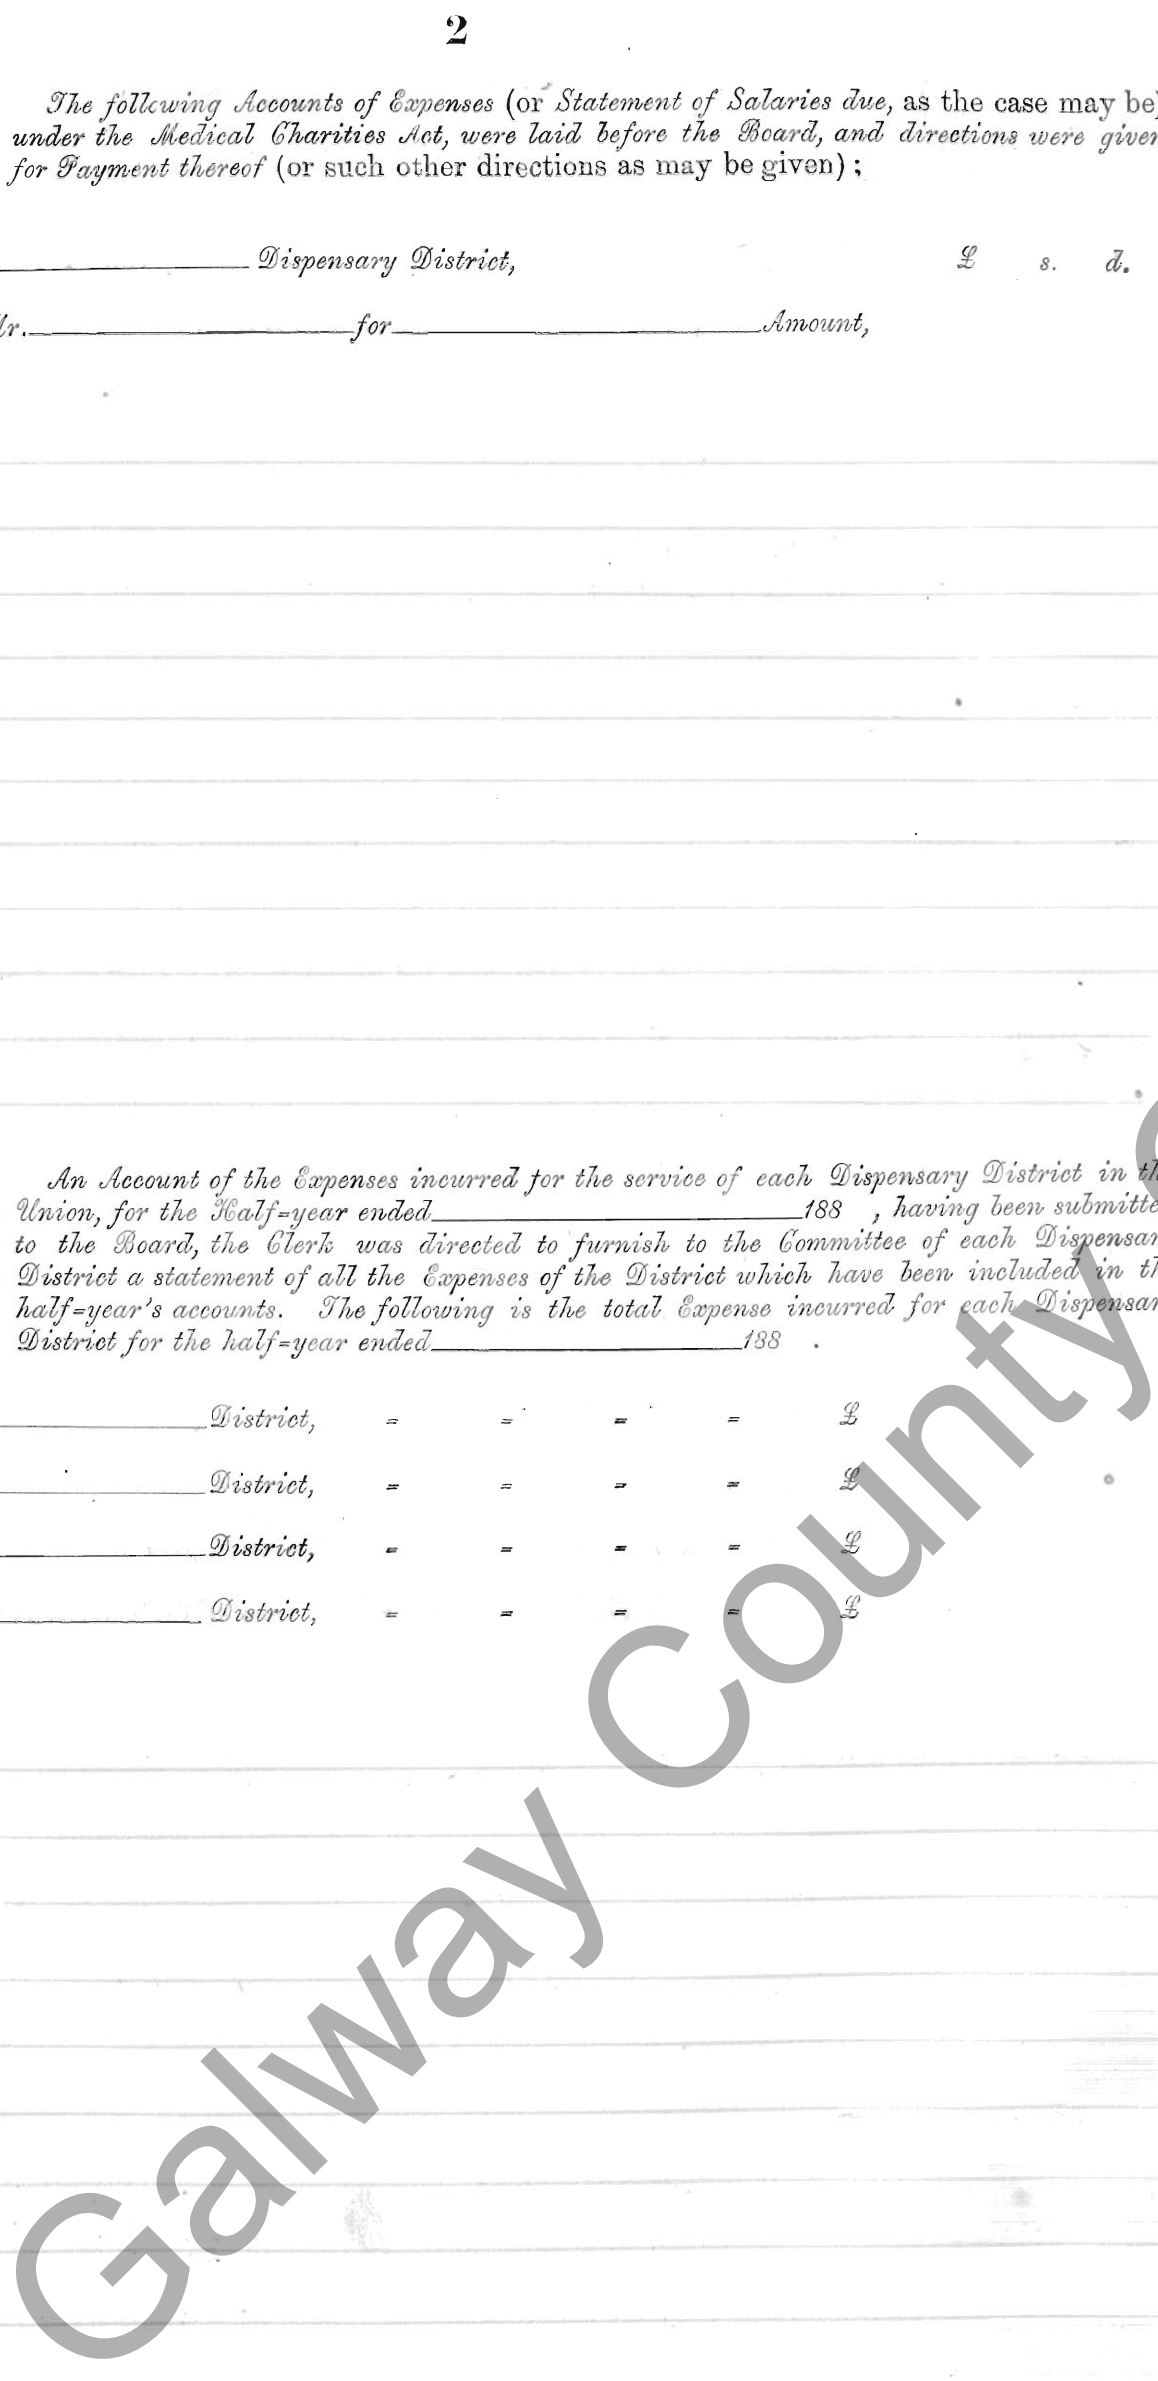 2
The following Accounts of Expenses (or Statement of Salaries due, as the case may be)
under the Medical Charities Act, were laid before the Board, and directions were given
for Payment thereof (or such other directions as may be given) ;
Dispensary District, £ s. d.
Mr. for Amount,
An Account of the Expenses incurred for the service of each Dispensary District in th
Union, for the Half=year ended 188 , having been submitte
to the Board, the Clerk was directed to furnish to the Committee of each Dispensar
District a statement of all the Expenses of the District which have been included in th
half=year's accounts. The following is the total Expense incurred for each Dispensar
District for the half=year ended 188 .
District, = = = = £
District, = = = = £
District, = = = = £
District, = = = = £
Galway County